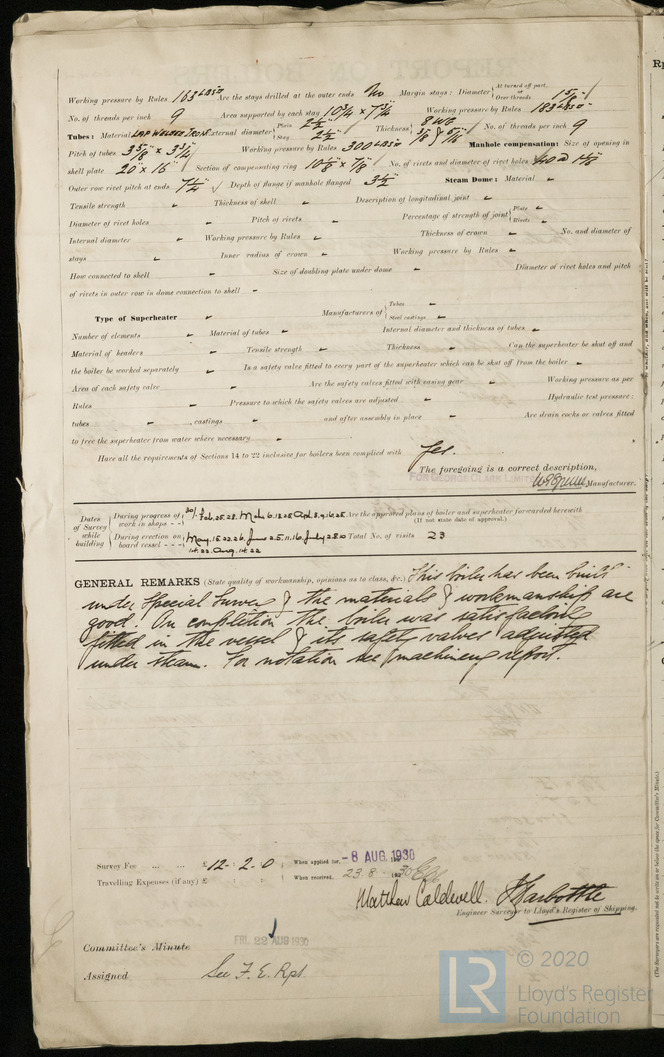 Working pressure by Rules 163 LBS□" Are the stays drilled at the outer ends No Margin stays: Diameter { At turned off part, or Over threads 1 5/8"
No. of threads per inch 9 Area supported by each stay 10 3/4" × 7 3/4" Working pressure by Rules 183 LBS□"
Tubes: Material LAP WELDED IRON External diameter { Plain 2 1/2" Stay 2 1/2" Thickness { 8 WG 5/16" No. of threads per inch 9
Pitch of tubes 3 5/8" × 3 3/4" Working pressure by Rules 300 LBS□" Manhole compensation: Size of opening in
shell plate 20" × 16" Section of compensating ring No. of rivets and diameter of rivet holes
Outer row rivet pitch at ends Depth of flange if manhole flanged 3 1/2" Steam Dome: Material -
Tensile strength - Thickness of shell - Description of longitudinal joint -
Diameter of rivet holes - Pitch of rivets - Percentage of strength of joint { Plate - Rivets -
Internal diameter - Working pressure by Rules - Thickness of crown - No. and diameter of
stays - Inner radius of crown - Working pressure by Rules -
How connected to shell - Size of doubling plate under dome - Diameter of rivet holes and pitch
of rivets in outer row in dome connection to shell -
Type of Superheater - Manufacturers of { Tubes - Steel castings -
Number of elements - Material of tubes - Internal diameter and thickness of tubes -
Material of headers - Tensile strength - Thickness - Can the superheater be shut off and
the boiler be worked separately - Is a safety valve fitted to every part of the superheater which can be shut off from the boiler -
Area of each safety valve - Are the safety valves fitted with easing gear - Working pressure as per
Rules - Pressure to which the safety valves are adjusted - Hydraulic test pressure:
tubes - , castings - and after assembly in place - Are drain cocks or valves fitted
to free the superheater from water where necessary -
Have all the requirements of Sections 14 to 22 inclusive for boilers been complied with Yes.
The foregoing is a correct description,
FOR GEORGE CLARK LIMITED
Manufacturer.
Dates of Survey while building { During progress of work in shops - - 30/ Feb. 25. 28. Mch 6. 18. 25 Apl. 8. 9. 16. 25. Are the approved plans of boiler and superheater forwarded herewith
(If not state date of approval.)
During erection on board vessel - - - May. 15. 22. 26. June 2. 5. 11. 16. July 28. 30 Total No. of visits 23
GENERAL REMARKS (State quality of workmanship, opinions as to class, &c.) This boiler has been built
under Special Survey & the materials & workmanship are
good. On completion the boiler was satisfactorily
fitted in the vessel & its safety valves adjusted
under steam. For notation see machinery report.
Survey Fee ... ... £ 12 : 2 : 0 When applied for, -8 AUG 1930
Travelling Expenses (if any) £ : : When received, 23.8. 1930
Matthew Caldwell. J Jarbottle
Engineer Surveyor to Lloyd's Register of Shipping.
Committee's Minute FRI. 22 AUG 1930
Assigned See F. E. Rpt.
LR
© 2020
Lloyd's Register
Foundation